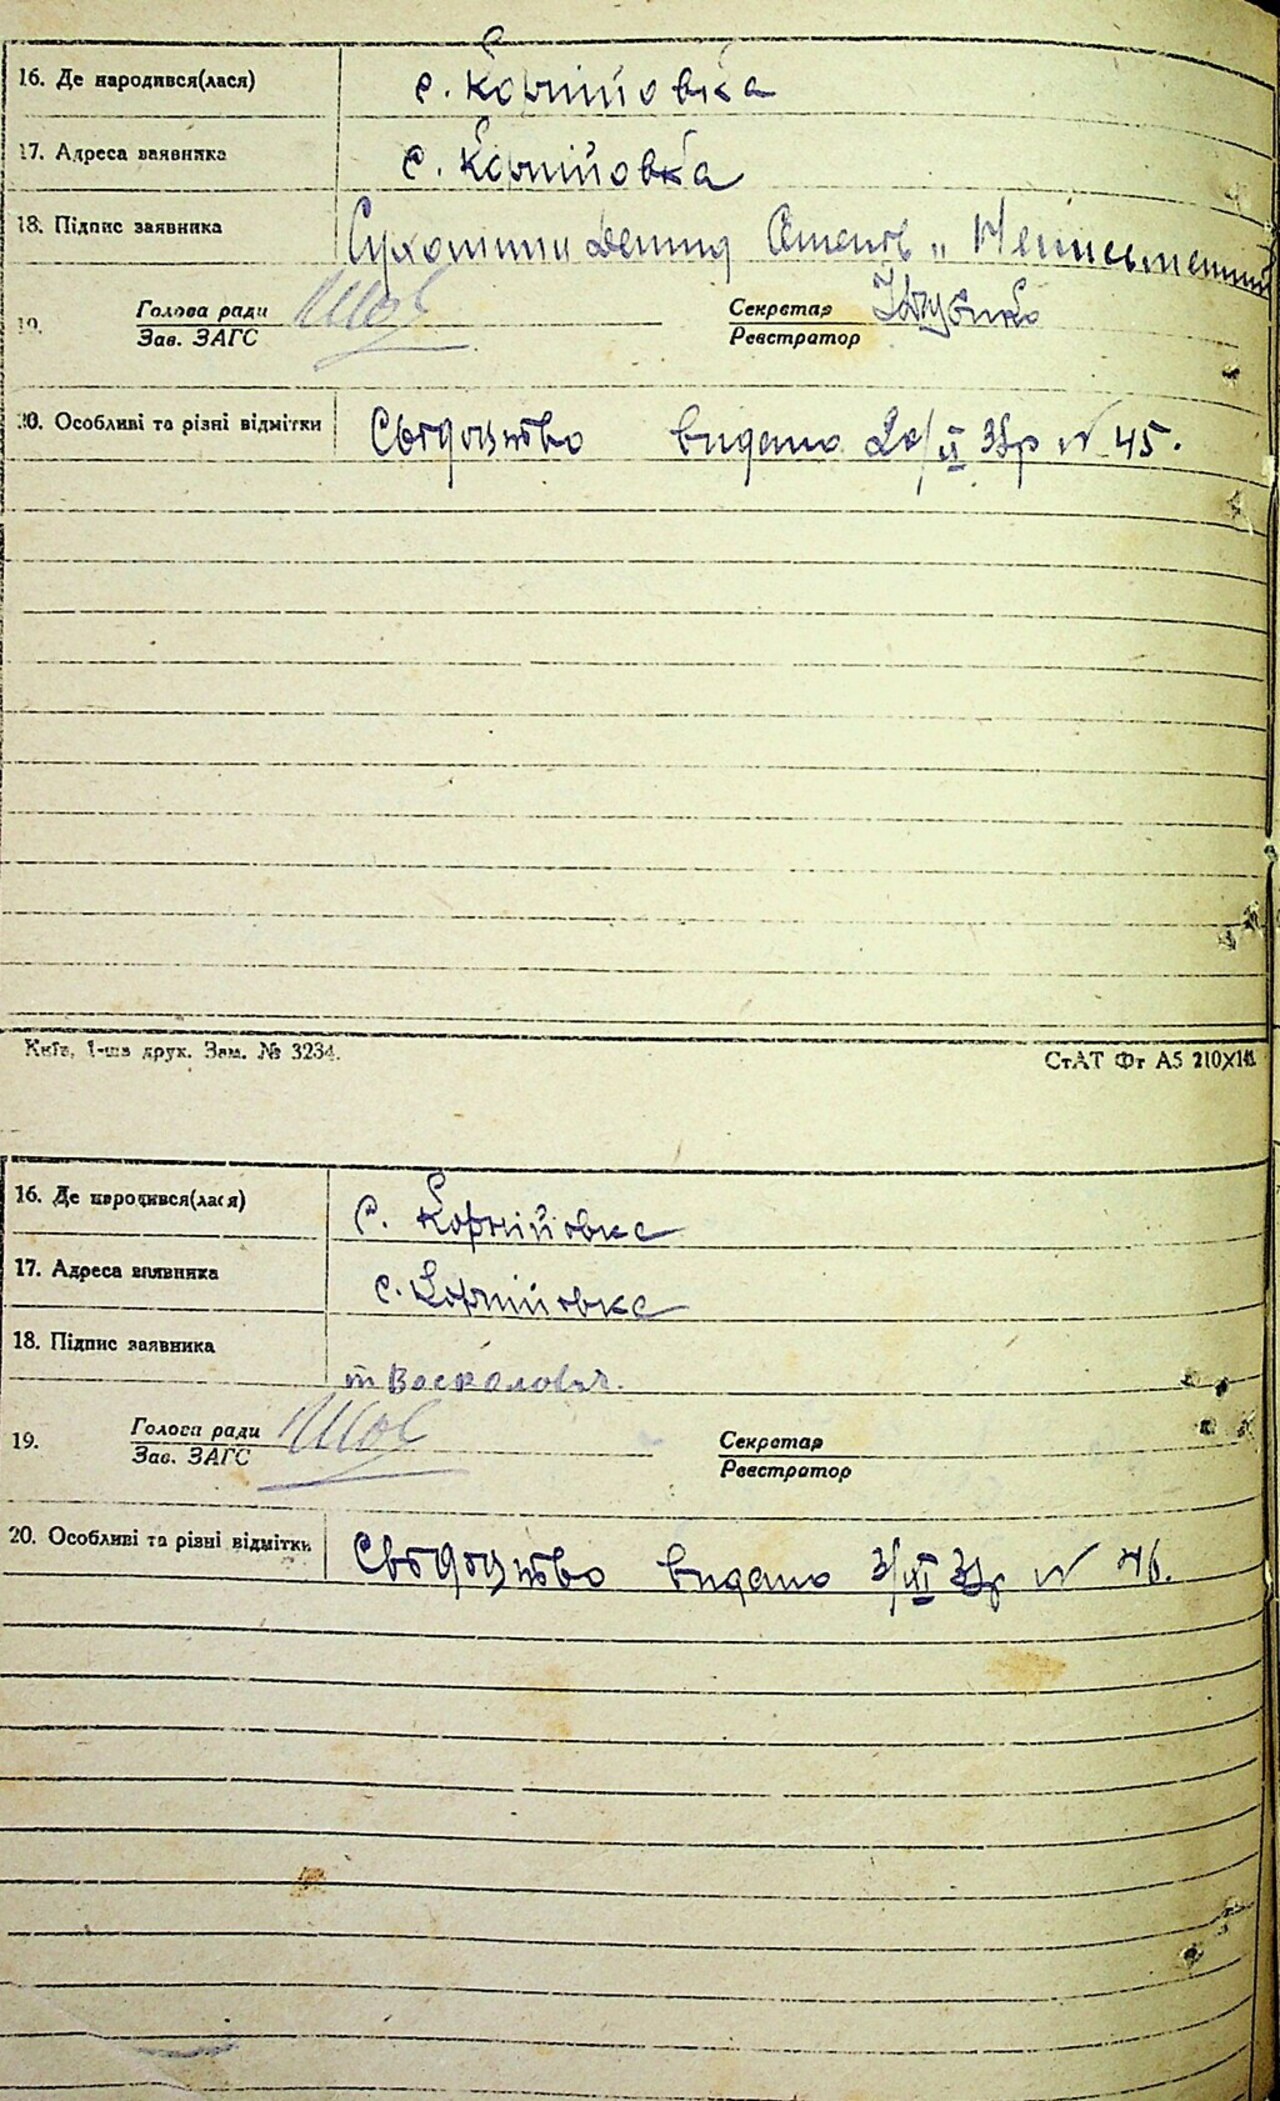 16. Де народився(лася) с. Корнійовка
17. Адреса заявника с. Корнійовка
18. Підпис заявника
Голова ради Секретар
19.
Зав. ЗАГС Реєстратор
20. Особливі та різні відмітки Свідоцтво видано 20/ІХ 38р № 45.
Київ, 1-ша друк. Зам. № 3234. СтАТ Фт А5 210Х148
16. Де народився(лася) с. Корнійовка
17. Адреса заявника с. Корнійовка
18. Підпис заявника
Голова ради Секретар
19.
Зав. ЗАГС Реєстратор
20. Особливі та різні відмітки Свідоцтво видано № 46.